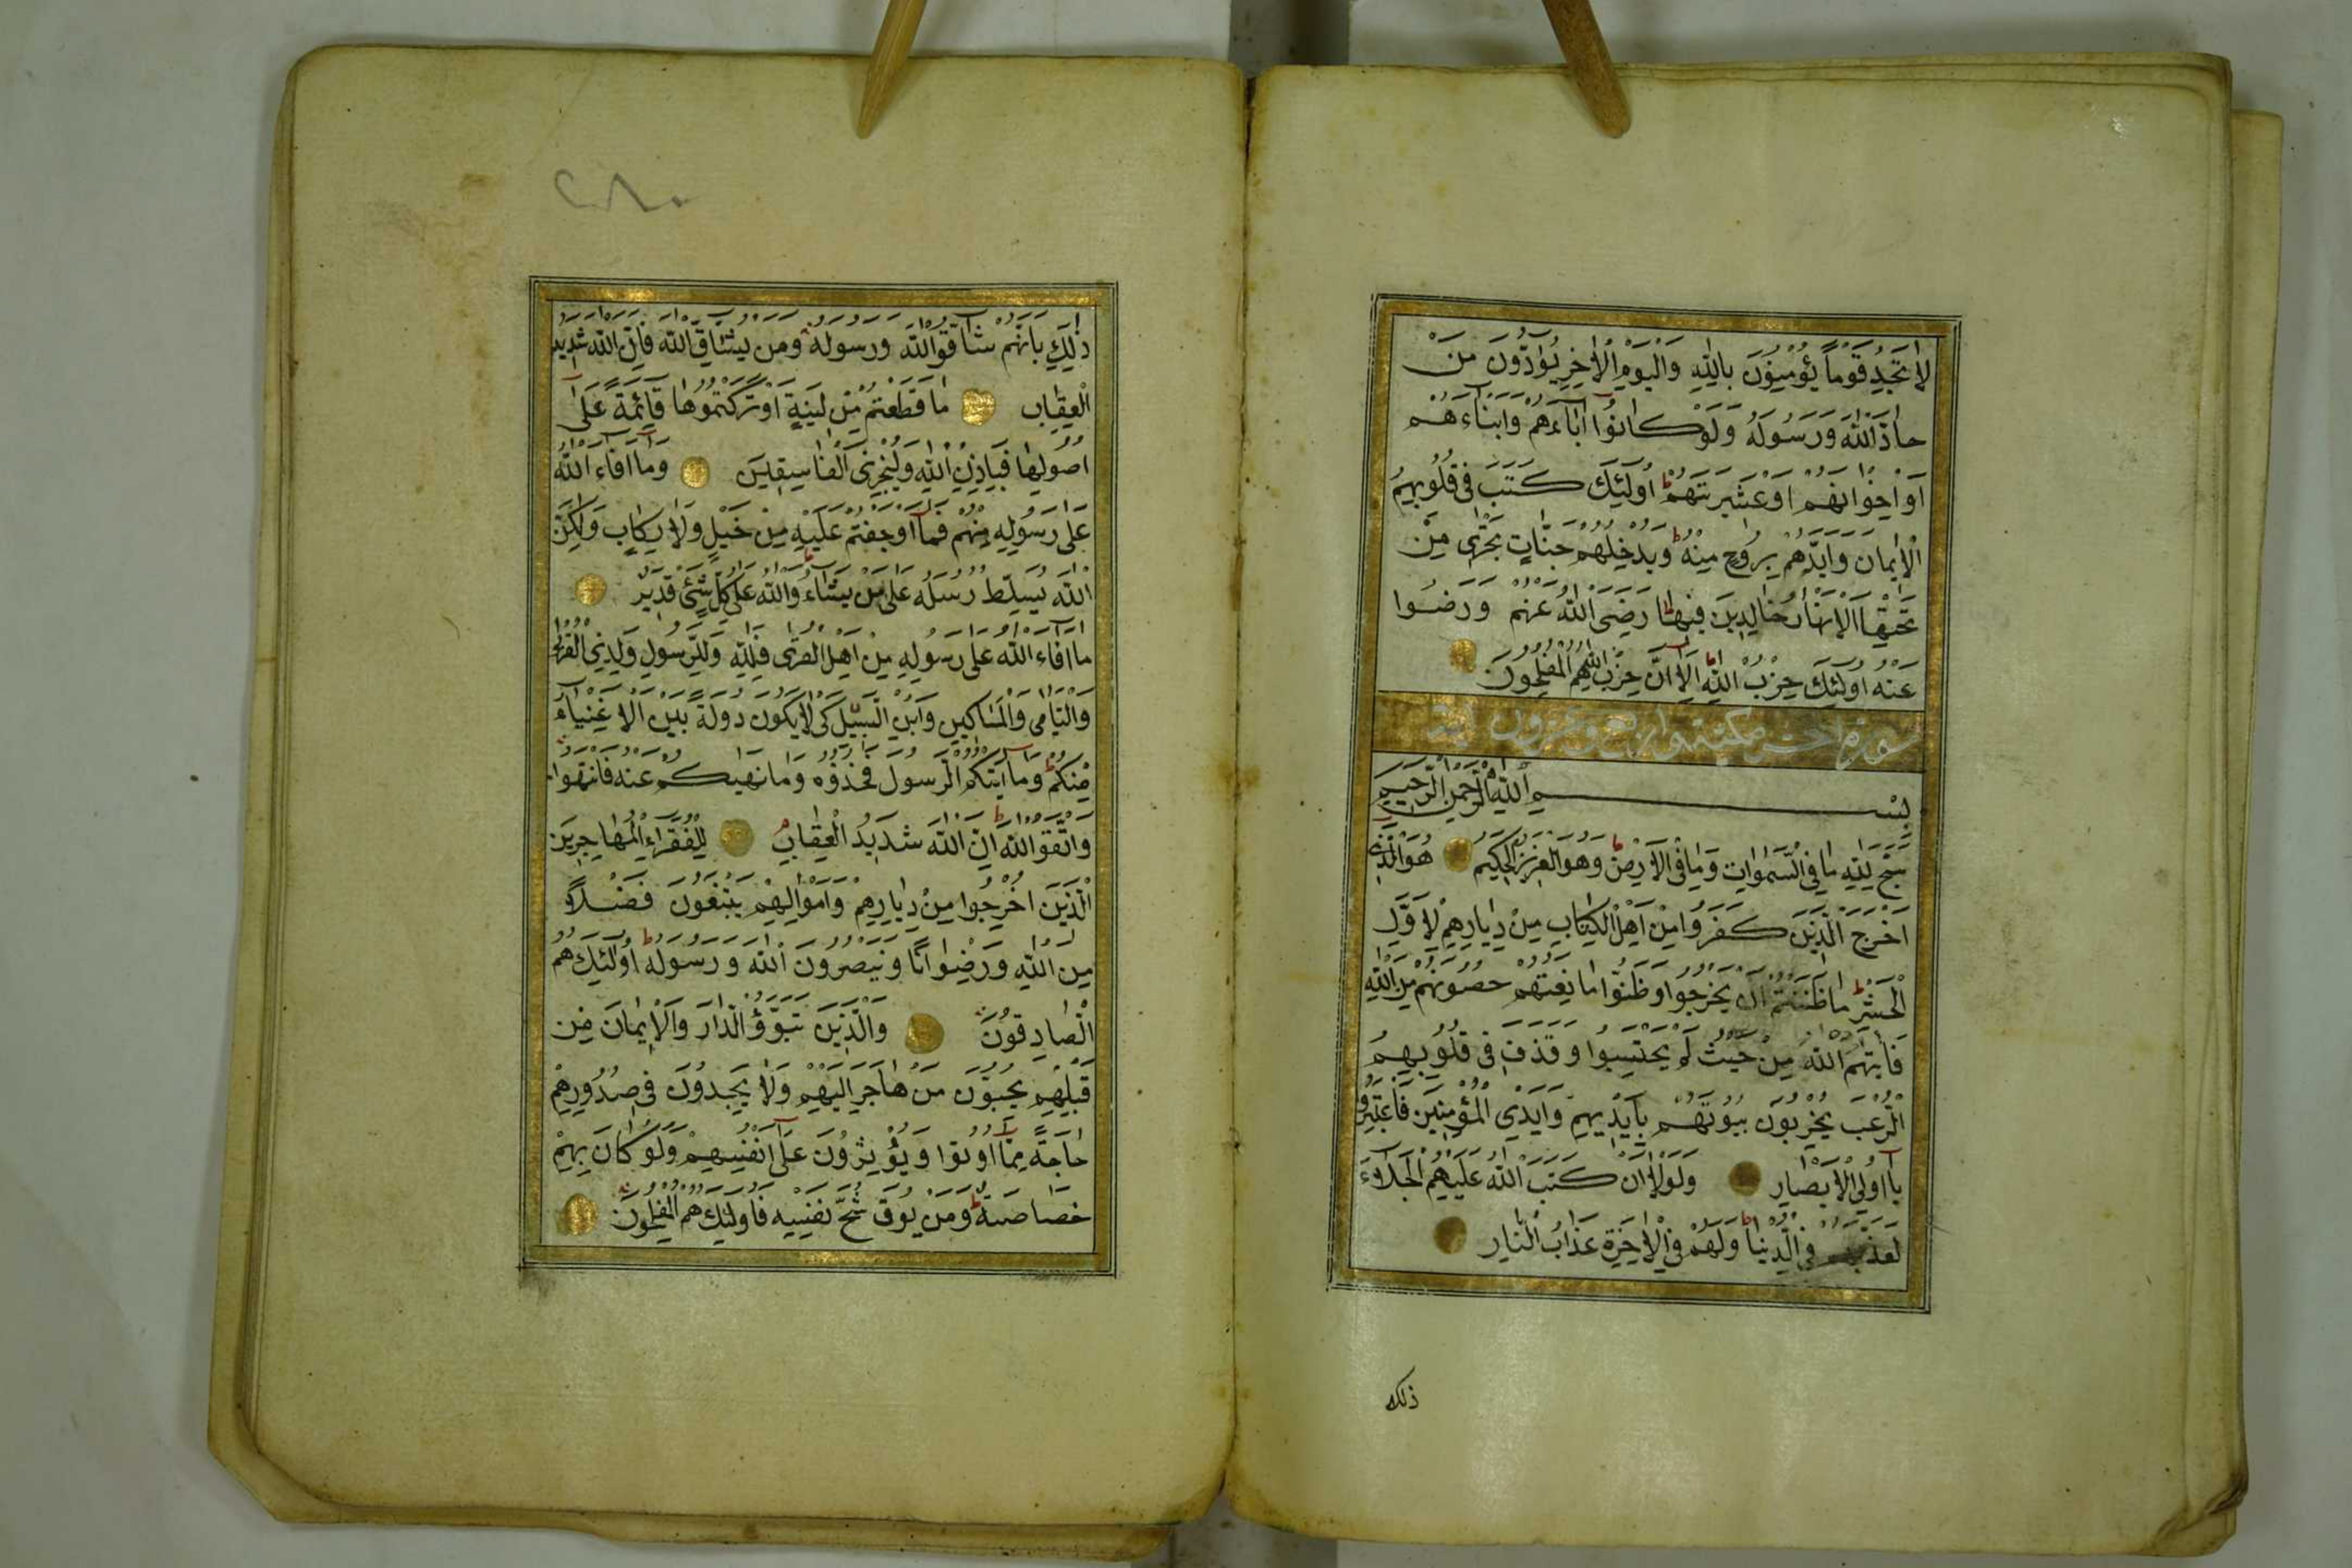 لَا تَجِدُ قَوْمًا يُؤْمِنُونَ بِاللّٰهِ وَالْيَوْمِ الْاٰخِرِ يُوَادُّونَ مَنْ
حَادَّ اللّٰهَ وَرَسُولَهُ وَلَوْ كَانُوا اٰبَاءَهُمْ وَاَبْنَاءَهُمْ
اَوْ اِخْوَانَهُمْ اَوْ عَشِيرَتَهُمْ اُولٰئِكَ كَتَبَ فِى قُلُوبِهِمُ
الْاِيمَانَ وَاَيَّدَهُمْ بِرُوحٍ مِنْهُ وَيُدْخِلُهُمْ جَنَّاتٍ تَجْرِى مِنْ
تَحْتِهَا الْاَنْهَارُ خَالِدِينَ فِيهَا رَضِىَ اللّٰهُ عَنْهُمْ وَرَضُوا
عَنْهُ اُولٰئِكَ حِزْبُ اللّٰهِ اَلَا اِنَّ حِزْبَ اللّٰهِ هُمُ الْمُفْلِحُونَ
سورة الحشر مكية وهى اربع وعشرون آية
بِسْمِ اللّٰهِ الرَّحْمٰنِ الرَّحِيمِ
سَبَّحَ لِلّٰهِ مَا فِى السَّمٰوَاتِ وَمَا فِى الْاَرْضِ وَهُوَ الْعَزِيزُ الْحَكِيمُ هُوَ الَّذِى
اَخْرَجَ الَّذِينَ كَفَرُوا مِنْ اَهْلِ الْكِتَابِ مِنْ دِيَارِهِمْ لِاَوَّلِ
الْحَشْرِ مَا ظَنَنْتُمْ اَنْ يَخْرُجُوا وَظَنُّوا مَانِعَتُهُمْ حُصُونُهُمْ مِنَ اللّٰهِ
فَاَتٰيهُمُ اللّٰهُ مِنْ حَيْثُ لَمْ يَحْتَسِبُوا وَقَذَفَ فِى قُلُوبِهِمُ
الرُّعْبَ يُخْرِبُونَ بُيُوتَهُمْ بِاَيْدِيهِمْ وَاَيْدِى الْمُؤْمِنِينَ فَاعْتَبِرُوا
يَا اُولِى الْاَبْصَارِ وَلَوْلَا اَنْ كَتَبَ اللّٰهُ عَلَيْهِمُ الْجَلَاءَ
لَعَذَّبَهُمْ فِى الدُّنْيَا وَلَهُمْ فِى الْاٰخِرَةِ عَذَابُ النَّارِ
ذلك
٢٨٠
ذٰلِكَ بِاَنَّهُمْ شَاقُّوا اللّٰهَ وَرَسُولَهُ وَمَنْ يُشَاقِّ اللّٰهَ فَاِنَّ اللّٰهَ شَدِيدُ
الْعِقَابِ مَا قَطَعْتُمْ مِنْ لِينَةٍ اَوْ تَرَكْتُمُوهَا قَائِمَةً عَلٰى
اُصُولِهَا فَبِاِذْنِ اللّٰهِ وَلِيُخْزِىَ الْفَاسِقِينَ وَمَا اَفَاءَ اللّٰهُ
عَلٰى رَسُولِهِ مِنْهُمْ فَمَا اَوْجَفْتُمْ عَلَيْهِ مِنْ خَيْلٍ وَلَا رِكَابٍ وَلٰكِنَّ
اللّٰهَ يُسَلِّطُ رُسُلَهُ عَلٰى مَنْ يَشَاءُ وَاللّٰهُ عَلٰى كُلِّ شَىْءٍ قَدِيرٌ
مَا اَفَاءَ اللّٰهُ عَلٰى رَسُولِهِ مِنْ اَهْلِ الْقُرٰى فَلِلّٰهِ وَلِلرَّسُولِ وَلِذِى الْقُرْبٰى
وَالْيَتَامٰى وَالْمَسَاكِينِ وَابْنِ السَّبِيلِ كَىْ لَا يَكُونَ دُولَةً بَيْنَ الْاَغْنِيَاءِ
مِنْكُمْ وَمَا اٰتٰيكُمُ الرَّسُولُ فَخُذُوهُ وَمَا نَهٰيكُمْ عَنْهُ فَانْتَهُوا
وَاتَّقُوا اللّٰهَ اِنَّ اللّٰهَ شَدِيدُ الْعِقَابِ لِلْفُقَرَاءِ الْمُهَاجِرِينَ
الَّذِينَ اُخْرِجُوا مِنْ دِيَارِهِمْ وَاَمْوَالِهِمْ يَبْتَغُونَ فَضْلًا
مِنَ اللّٰهِ وَرِضْوَانًا وَيَنْصُرُونَ اللّٰهَ وَرَسُولَهُ اُولٰئِكَ هُمُ
الصَّادِقُونَ وَالَّذِينَ تَبَوَّؤُ الدَّارَ وَالْاِيمَانَ مِنْ
قَبْلِهِمْ يُحِبُّونَ مَنْ هَاجَرَ اِلَيْهِمْ وَلَا يَجِدُونَ فِى صُدُورِهِمْ
حَاجَةً مِمَّا اُوتُوا وَيُؤْثِرُونَ عَلٰى اَنْفُسِهِمْ وَلَوْ كَانَ بِهِمْ
خَصَاصَةٌ وَمَنْ يُوقَ شُحَّ نَفْسِهِ فَاُولٰئِكَ هُمُ الْمُفْلِحُونَ